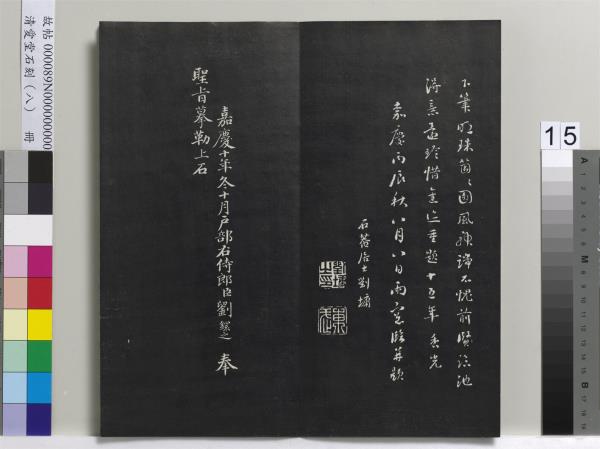 下筆明珠箇箇圓風
不愧前賢臨池
得意
珍惜
重題十五年香光
嘉慶丙辰秋八月八日雨窓臨并題
石菴居士劉墉
嘉慶十年冬十月戶部右侍郎臣劉鐶之奉
聖旨摹勒上石
故帖 000089N000000000
清愛堂石刻(八) 冊
15
A
M
B